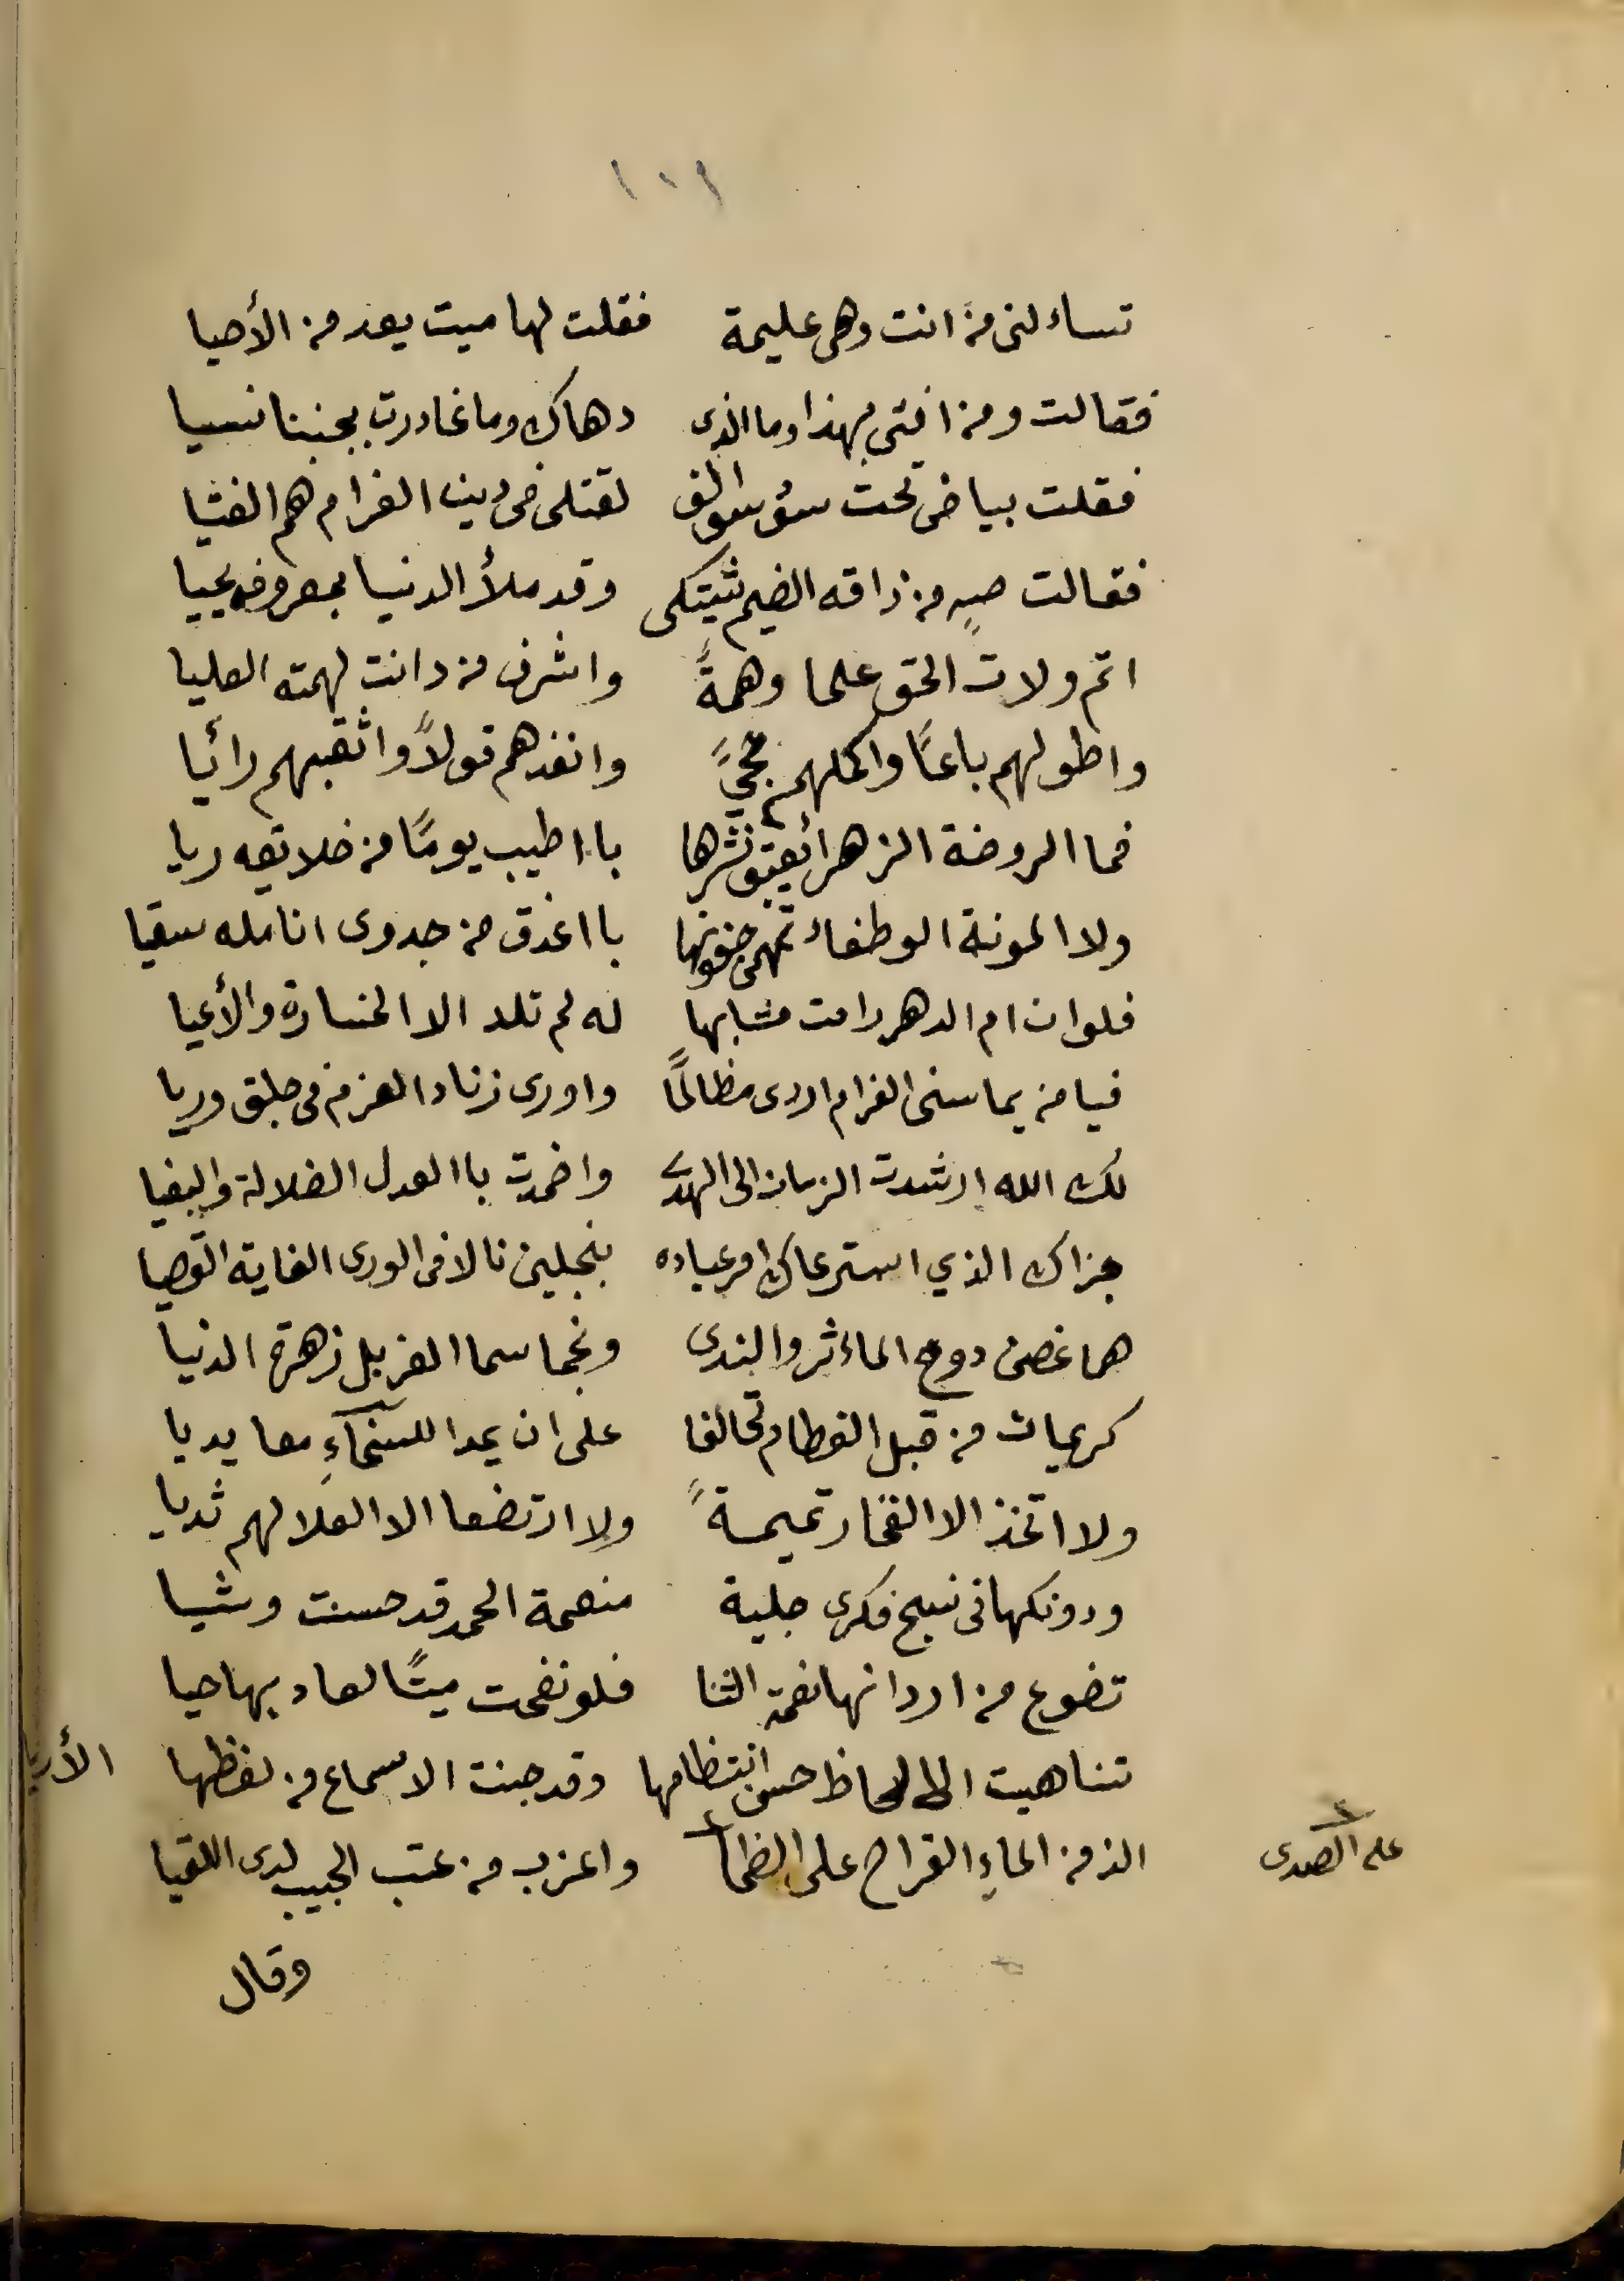 ١٠٩
تساءلنى من انت وهى عليمة فقلت لها ميت يعد من الأحيا
فقالت ومن افتى بهذا وما الذى دهاك وما غادرت بجبنا نسيا
فقلت بياض تحت سود سوالف لقتلى فى دين الغرام هم الفتيا
فقالت صه من ذاقه الضيم تشتكى وقد ملأ الدنيا بمعروفه يحيا
اتم ولات الحق علما وهمةً واشرف من دانت لهمته العليا
واطولهم باعًا واكملهم حجىً وانفذهم قولاً واثقبهم رائيا
فما الروضة الزهرا يعبق نشرها با اطيب يومًا من خلايقه ريا
ولا المونة الوطفاء تهمى جفونها با اغدق من جدوى انامله سقيا
فلو ان ام الدهر رامت مشابها له لم تلد الا الخسارة والأعيا
فيا من يماسنى الغرام اردى مظالمًا واورى زناد العزم فى جلق وريا
لك الله ارشدت الزمان الى الهدى واخمدت با العدل الضلالة والبغيا
جزاك الذي استرعاك امر عباده بنجلين نالا فى الورى الغاية القصيا
هما غصن دوح الماءثر والندى ونجما سما العز بل زهرة الدنيا
كريمان من قبل الفطام تحالفا على ان يمدا للسخآءِ معا يديا
ولا اتخذ الا الفخار تميمةً ولا ارتضعا الا العلا لهم ثديا
ودونكها فى نسج فكرى جلية منعمة الحمد قد حسنت وشيا
تضوع من اردانها نغمة الثنا فلو نفحت ميتًا لعاد بها حيا
تناهيت الى لحاظ حسن انتظامها وقد جنت الاسماع من لفظها الأريا
الذ من الماءِ القراح على الظمأ واعزب من عتب الحبيب لدى اللقيا
على الصدى
وقال